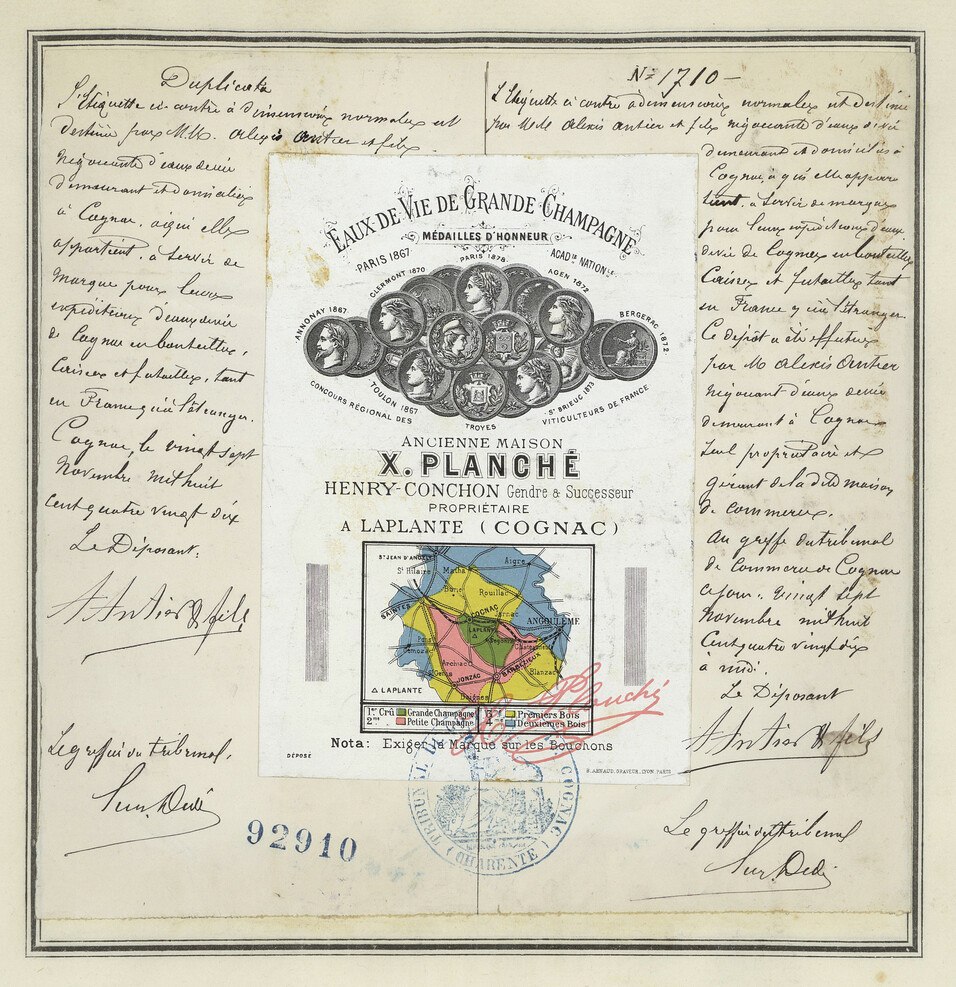 Duplicata
L'Étiquette ci-contre à dimensions normales est
destinée par M.M. Alexis Antier et fils
négociants d'eaux de vie
demeurant et domiciliés
à Cognac, à qui elle
appartient, à servir de
marque pour leurs
expéditions d'eaux de vie
de Cognac en bouteilles,
Caisses et futailles, tant
en France qu'à l'étranger.
Cognac, le vingt sept
Novembre mil huit
cent quatre vingt dix
Le Déposant:
A Antier & fils
Le greffier du tribunal,
92910
EAUX-DE-VIE DE GRANDE CHAMPAGNE
MÉDAILLES D'HONNEUR
PARIS 1867
PARIS 1878
ACAD.IE NATION.LE
CLERMONT 1870
AGEN 1872
ANNONAY 1867
BERGERAC 1872
TOULON 1867
ST BRIEUC 1873
CONCOURS RÉGIONAL DES
TROYES
VITICULTEURS DE FRANCE
ANCIENNE MAISON
X. PLANCHÉ
HENRY-CONCHON Gendre & Successeur
PROPRIÉTAIRE
A LAPLANTE (COGNAC)
ST JEAN D'ANGÉLY
Aigre
St Hilaire
Matha
Burie
Rouillac
SAINTES
COGNAC
Jarnac
ANGOULÊME
LAPLANTE
Segonzac
Châteauneuf
Pons
Gemozac
Archiac
BARBEZIEUX
Blanzac
St Genis
JONZAC
△ LAPLANTE
1er Crû Grande Champagne
2me Petite Champagne
3me Premiers Bois
4me Deuxièmes Bois
X. Planché
Nota: Exiger la Marque sur les Bouchons
DÉPOSÉ
B. ARNAUD, GRAVEUR, LYON, PARIS
TRIBUNAL DE COGNAC
(CHARENTE)
No 1710 —
L'Étiquette ci contre à dimensions normales est destinée
par M.M. Alexis Antier et fils négociants d'eaux de vie
demeurant et domiciliés à
Cognac, à qui elle appar
tient, à servir de marque
pour leurs expéditions d'eaux
de vie de Cognac en bouteilles
Caisses et futailles tant
en France qu'à l'étranger
Ce dépôt a été effectué
par M Alexis Antier
négociant d'eaux de vie
demeurant à Cognac
seul propriétaire et
gérant de la dite maison
de commerce.
Au greffe du tribunal
de Commerce de Cognac
ce jour, vingt sept
Novembre mil huit
Cent quatre vingt dix
à midi
Le Déposant
A Antier & fils
Le greffier du tribunal